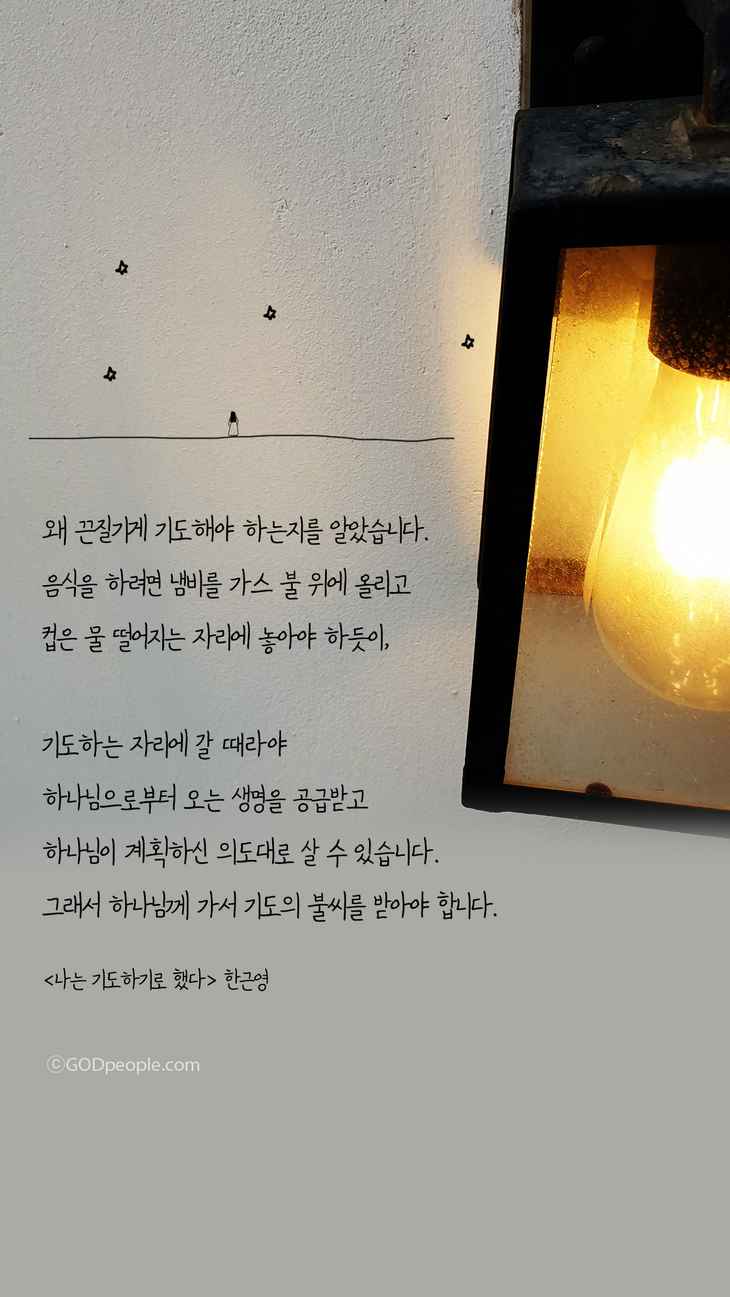 왜 끈질기게 기도해야 하는지를 알았습니다.
음식을 하려면 냄비를 가스 불 위에 올리고
컵은 물 떨어지는 자리에 놓아야 하듯이,
기도하는 자리에 갈 때라야
하나님으로부터 오는 생명을 공급받고
하나님이 계획하신 의도대로 살 수 있습니다.
그래서 하나님께 가서 기도의 불씨를 받아야 합니다.
<나는 기도하기로 했다> 한근영
ⓒGODpeople.com